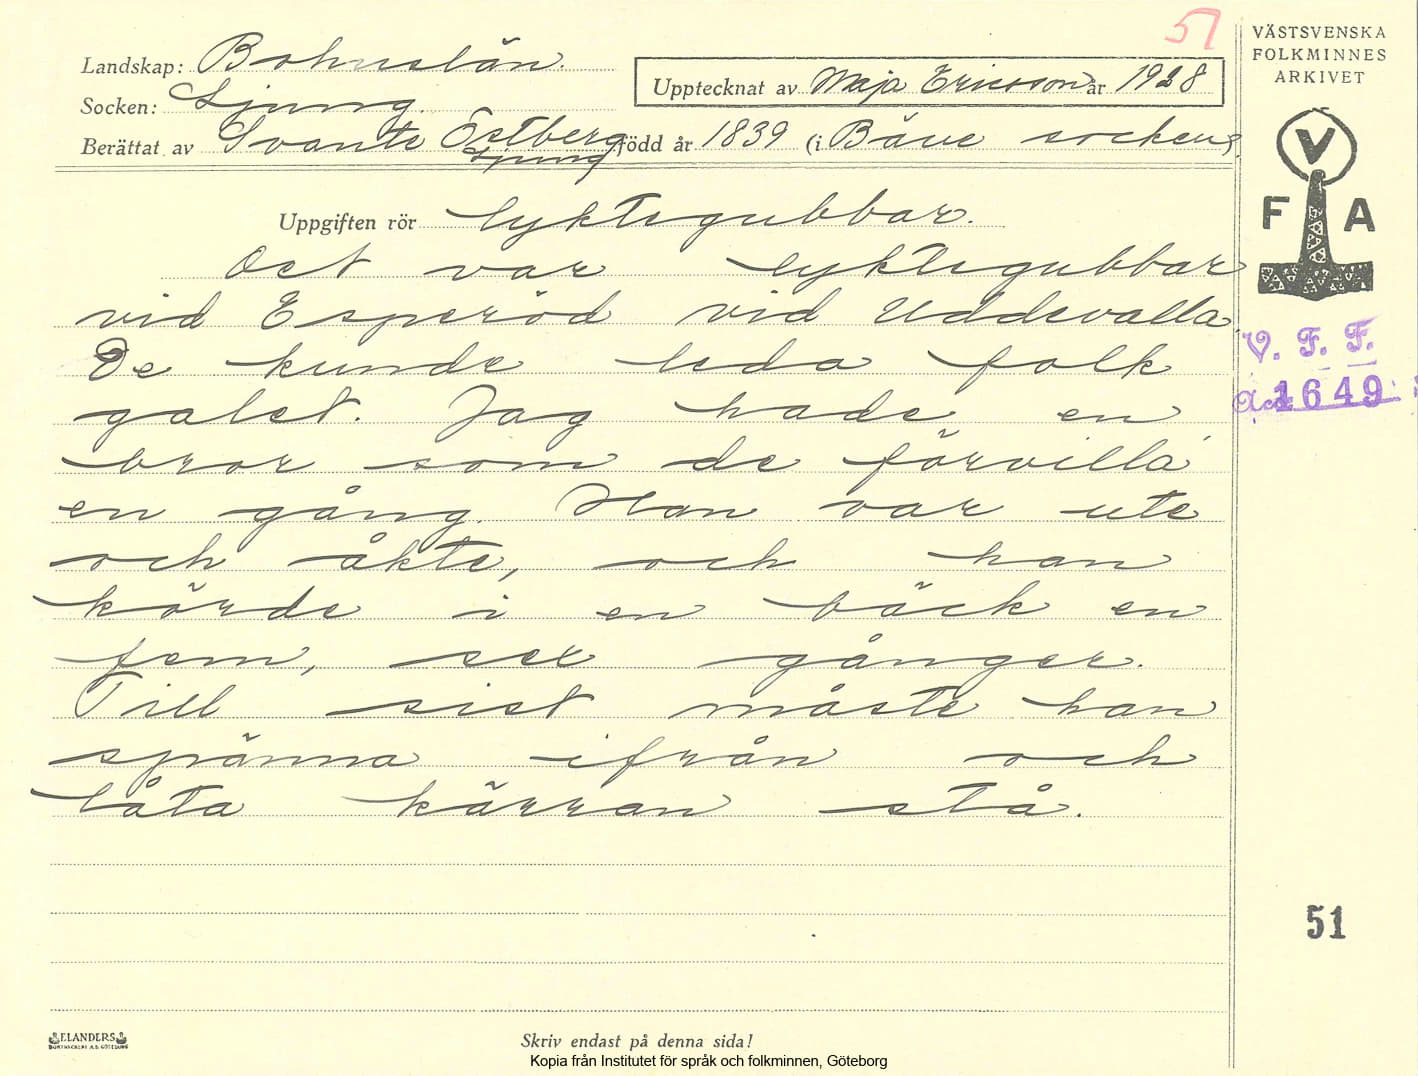 51
VÄSTSVENSKA
FOLKMINNES
ARKIVET
Landskap: Bohuslän.
Upptecknat av Maja Ericsson år 1928
Socken: Ljung
Berättat av Svante Estberg född år 1839 (i Bäve socken)
Ljung
V
F A
Uppgiften rör lyktegubbar.
Det var lyktegubbar
vid Esperöd vid Uddevalla.
De kunde leda folk
galet. Jag hade en
bror som de förvilla
en gång. Han var ute
och åkte, och han
körde i en bäck en
fem, sex gånger.
Till sist måste han
spänna ifrån och
låta kärran stå.
V. F. F.
Acc 1649
51
ELANDERS
BOKTRYCKERI A.B. GÖTEBORG
Skriv endast på denna sida!
Kopia från Institutet för språk och folkminnen, Göteborg